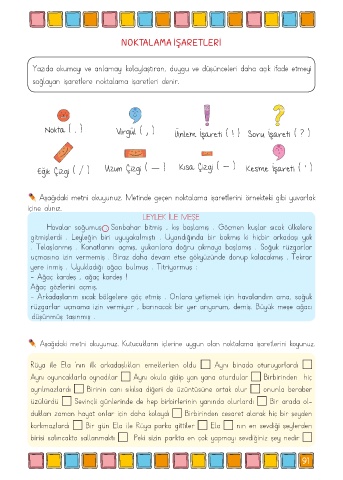 NOKTALAMA İŞARETLERİ
Yazıda okumayı ve anlamayı kolaylaştıran, duygu ve düşünceleri daha açık ifade etmeyi
sağlayan işaretlere noktalama işaretleri denir.
Nokta ( . ) Virgül ( , ) Ünlem İşareti ( ! ) Soru İşareti ( ? )
Eğik Çizgi ( / ) Uzun Çizgi ( — ) Kısa Çizgi ( - ) Kesme İşareti ( ' )
Aşağıdaki metni okuyunuz. Metinde geçen noktalama işaretlerini örnekteki gibi yuvarlak
içine alınız.
LEYLEK İLE MEŞE
Havalar soğumuş. Sonbahar bitmiş , kış başlamış . Göçmen kuşlar sıcak ülkelere
gitmişlerdi . Leyleğin biri uyuyakalmıştı . Uyandığında bir bakmış ki hiçbir arkadaşı yok
. Telaşlanmış. Kanatlarını açmış, yukarılara doğru çıkmaya başlamış . Soğuk rüzgarlar
uçmasına izin vermemiş . Biraz daha devam etse gökyüzünde donup kalacakmış . Tekrar
yere inmiş . Uyukladığı ağacı bulmuş . Titriyormuş :
- Ağaç kardeş , ağaç kardeş !
Ağaç gözlerini açmış.
- Arkadaşlarım sıcak bölgelere göç etmiş . Onlara yetişmek için havalandım ama, soğuk
rüzgarlar uçmama izin vermiyor . Barınacak bir yer arıyorum, demiş. Büyük meşe ağacı
düşünmüş taşınmış .
Aşağıdaki metni okuyunuz. Kutucukların içlerine uygun olan noktalama işaretlerini koyunuz.
Rüya ile Ela 'nın ilk arkadaşlıkları emeklerken oldu □ Aynı binada oturuyorlardı □
Aynı oyuncaklarla oynadılar □ Aynı okula gidip yan yana oturdular □ Birbirinden hiç
ayrılmazlardı □ Birinin canı sıkılsa diğeri de üzüntüsüne ortak olur □ onunla beraber
üzülürdü □ Sevinçli günlerinde de hep birbirlerinin yanında olurlardı □ Bir arada ol-
dukları zaman hayat onlar için daha kolaydı □ Birbirinden cesaret alarak hiç bir şeyden
korkmazlardı □ Bir gün Ela ile Rüya parka gittiler □ Ela □ nın en sevdiği şeylerden
birisi salıncakta sallanmaktı □ Peki sizin parkta en çok yapmayı sevdiğiniz şey nedir □
91